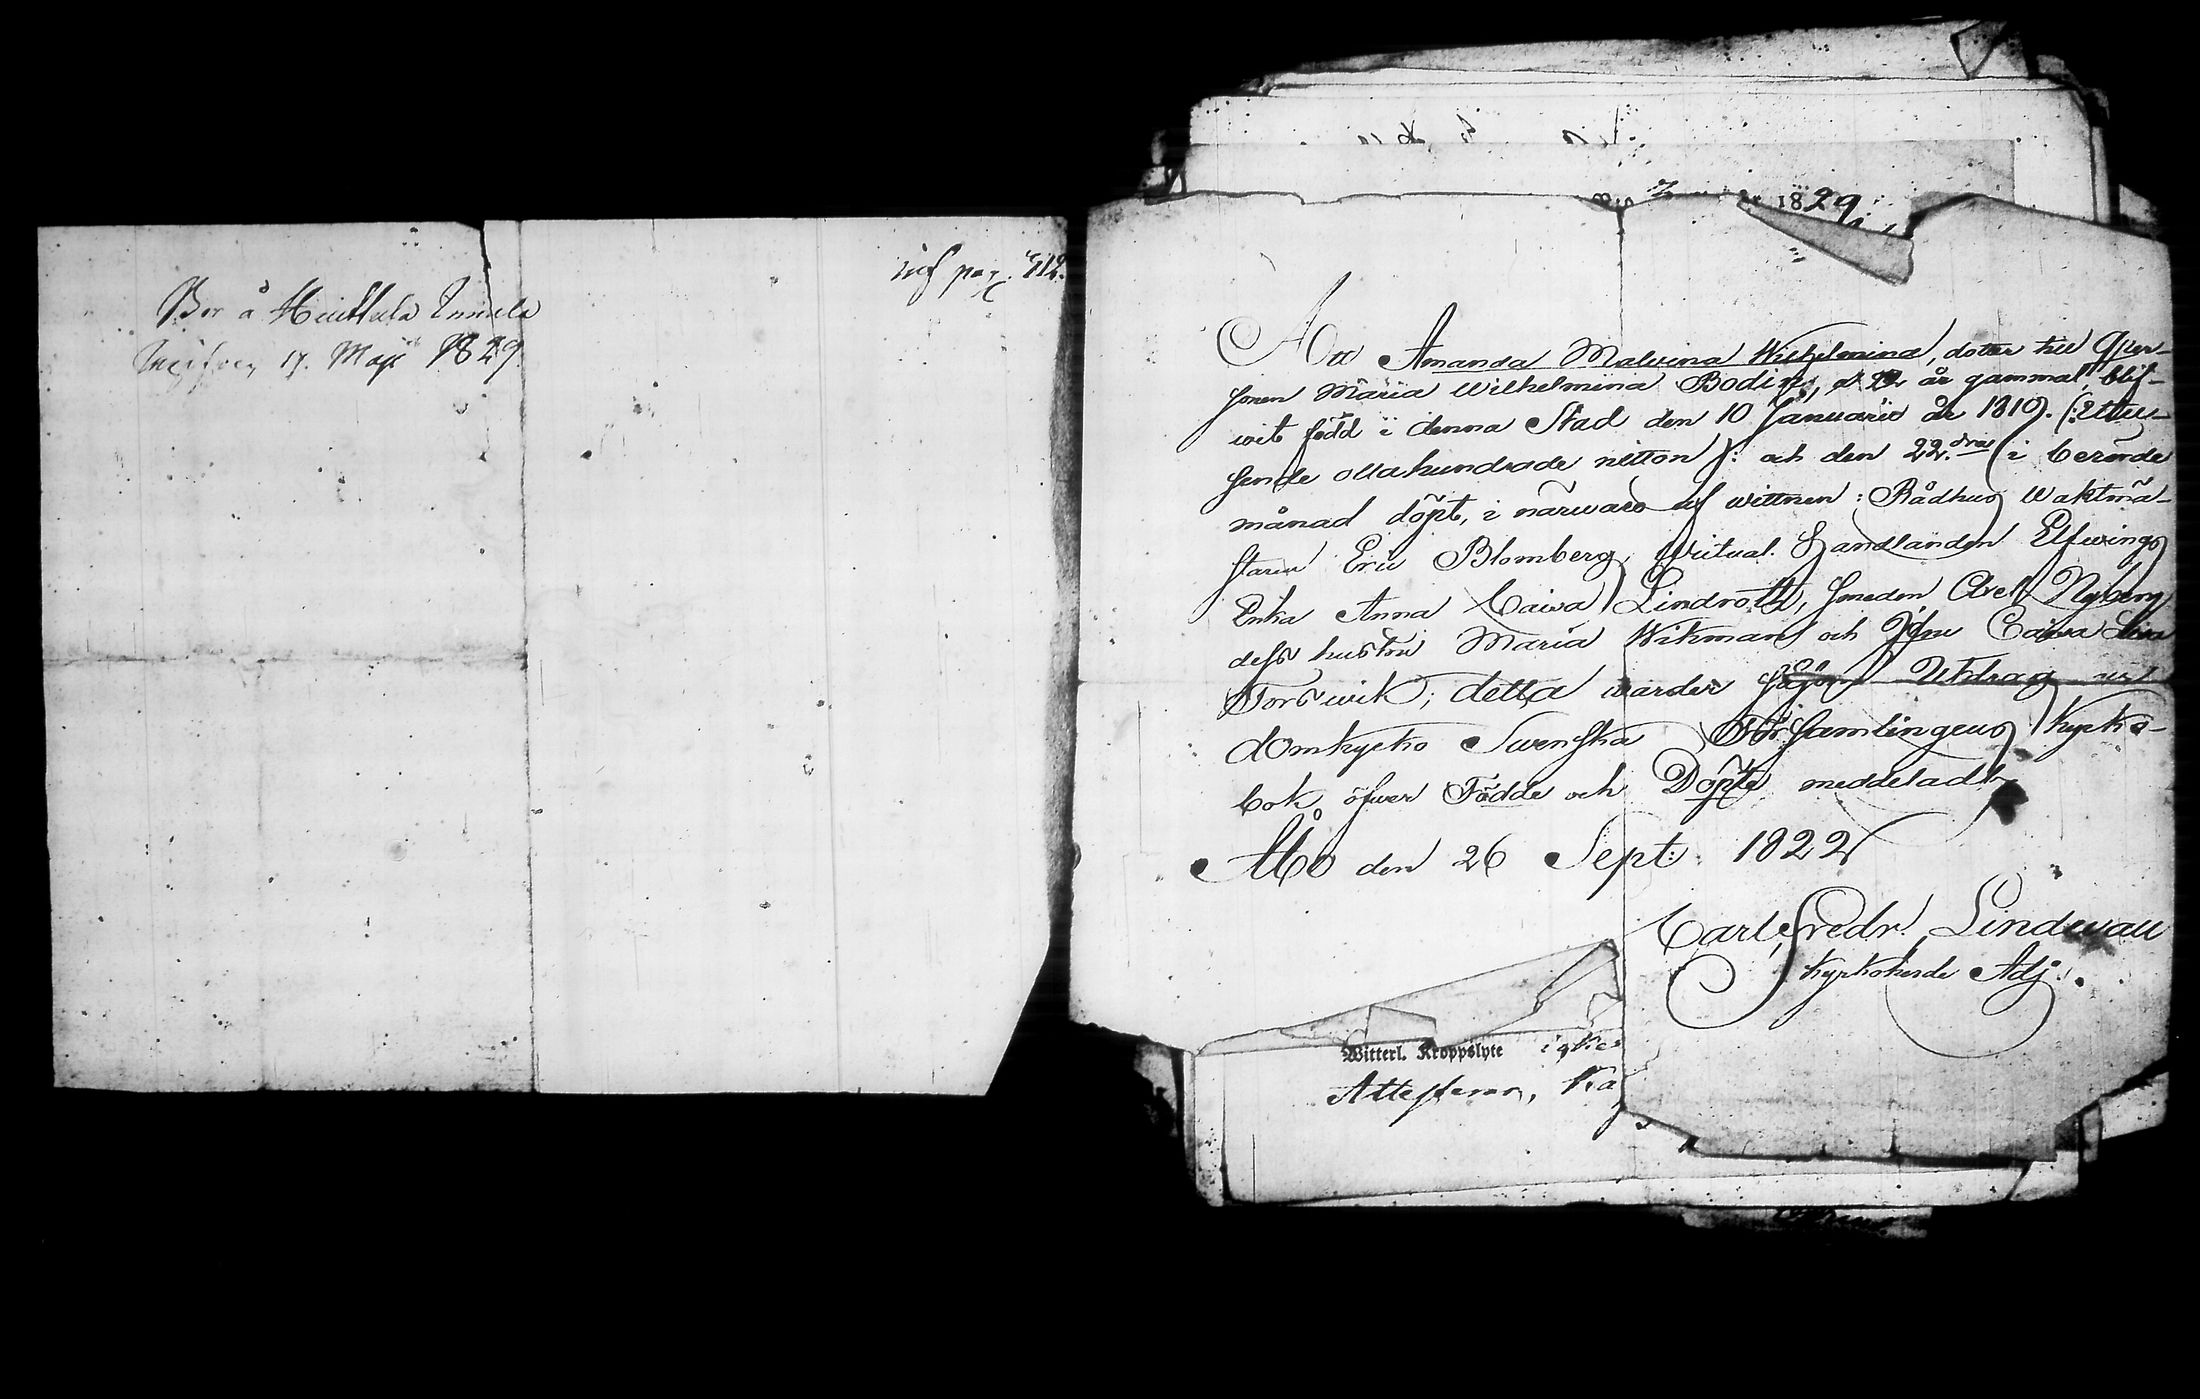 inf pag. 712.
Bor å Huittula
17. Maji 1829
1829
Att Amanda Malvina Wilhelmina, dotter till Qper-
sonen Maria Wilhelmina Bodin, år gammal, blif-
wit född i denna Stad den 10 Januarii år 1819. (:Ettu-
sende ottahundrade nitton): och den 22.dra i berörde
månad döpt, i närwaro af wittnen: Rådhus Waktmä-
staren Eric Blomberg, Victual. Handlanden Elfwings
Enka Anna Caisa Lindroth, smeden Axel Nyberg
dess hustru Maria Wikman och Jgfru Caisa Lisa
Forswik; detta warder såsom Utdrag ur
domkyrko Swenska Församlingens Kyrko-
bok öfwer Födde och Döpte meddeladt,
Åbo den 26 Sept: 1822
Carl Fredr. Lindwall
Kyrkoherde Adj.
Witterl. Kroppslyte
Attesterar,